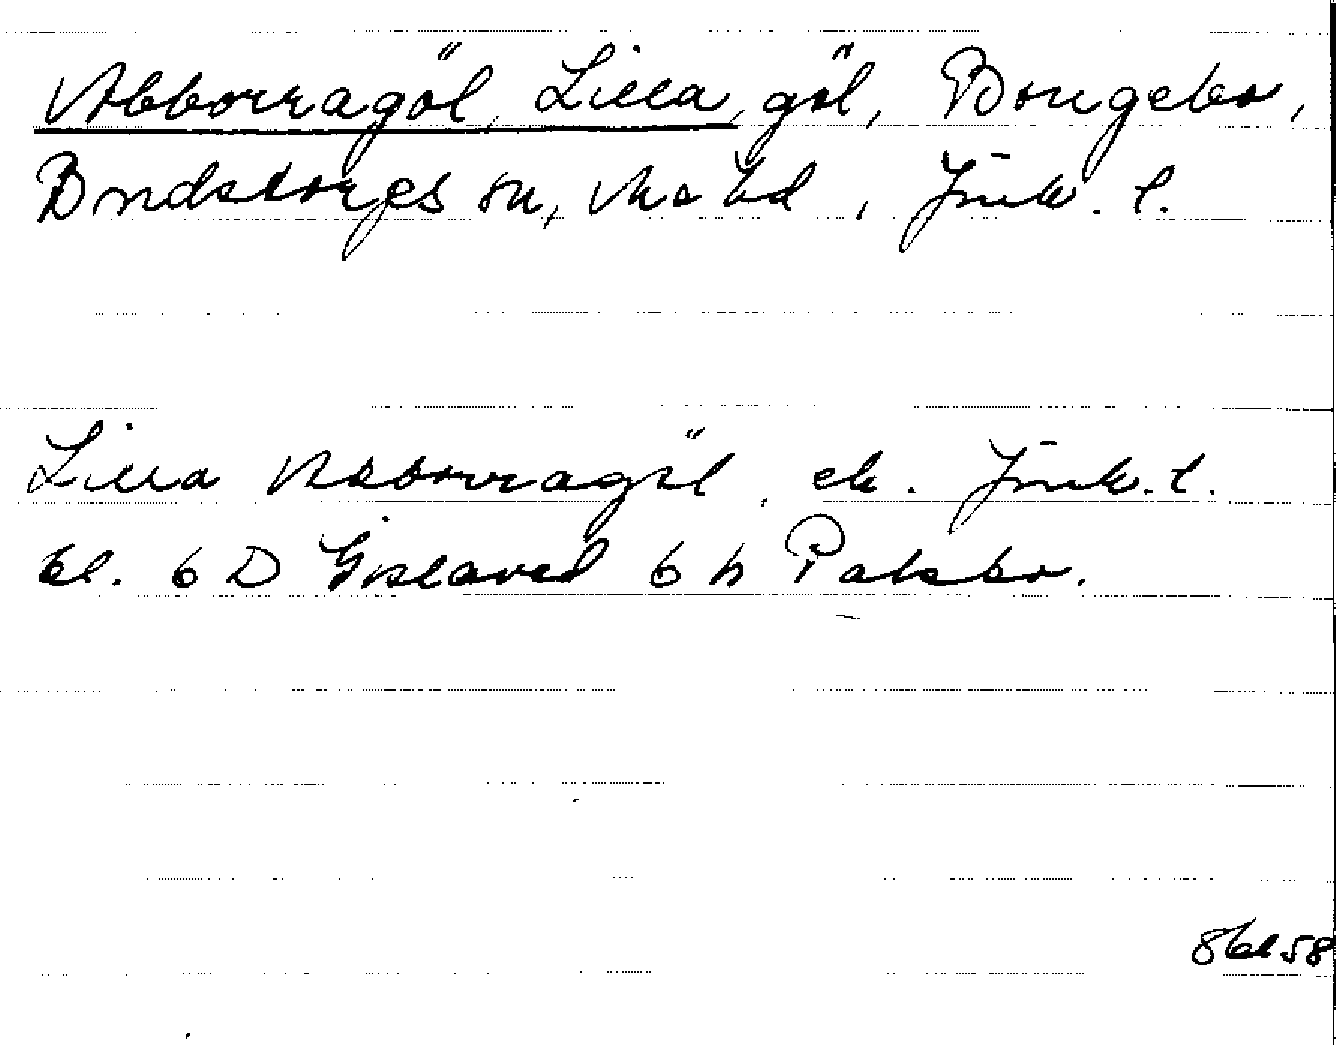 Abborragöl, Lilla, göl, Bongebo,
Bondstorps sn, Mo hd, Jönk. l.
Lilla Abborragöl, ek. Jönk. l.
bl. 6 D Gislaved 6 h Palsbo.